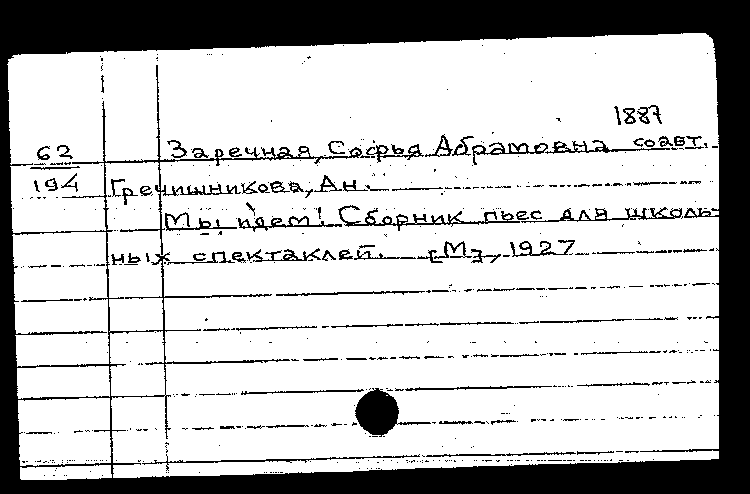 1887
62 Заречная, Софья Абрамовна соавт.
194 Гречишникова, Ан.
Мы идем! Сборник пьес для школь-
ных спектаклей. [М], 1927